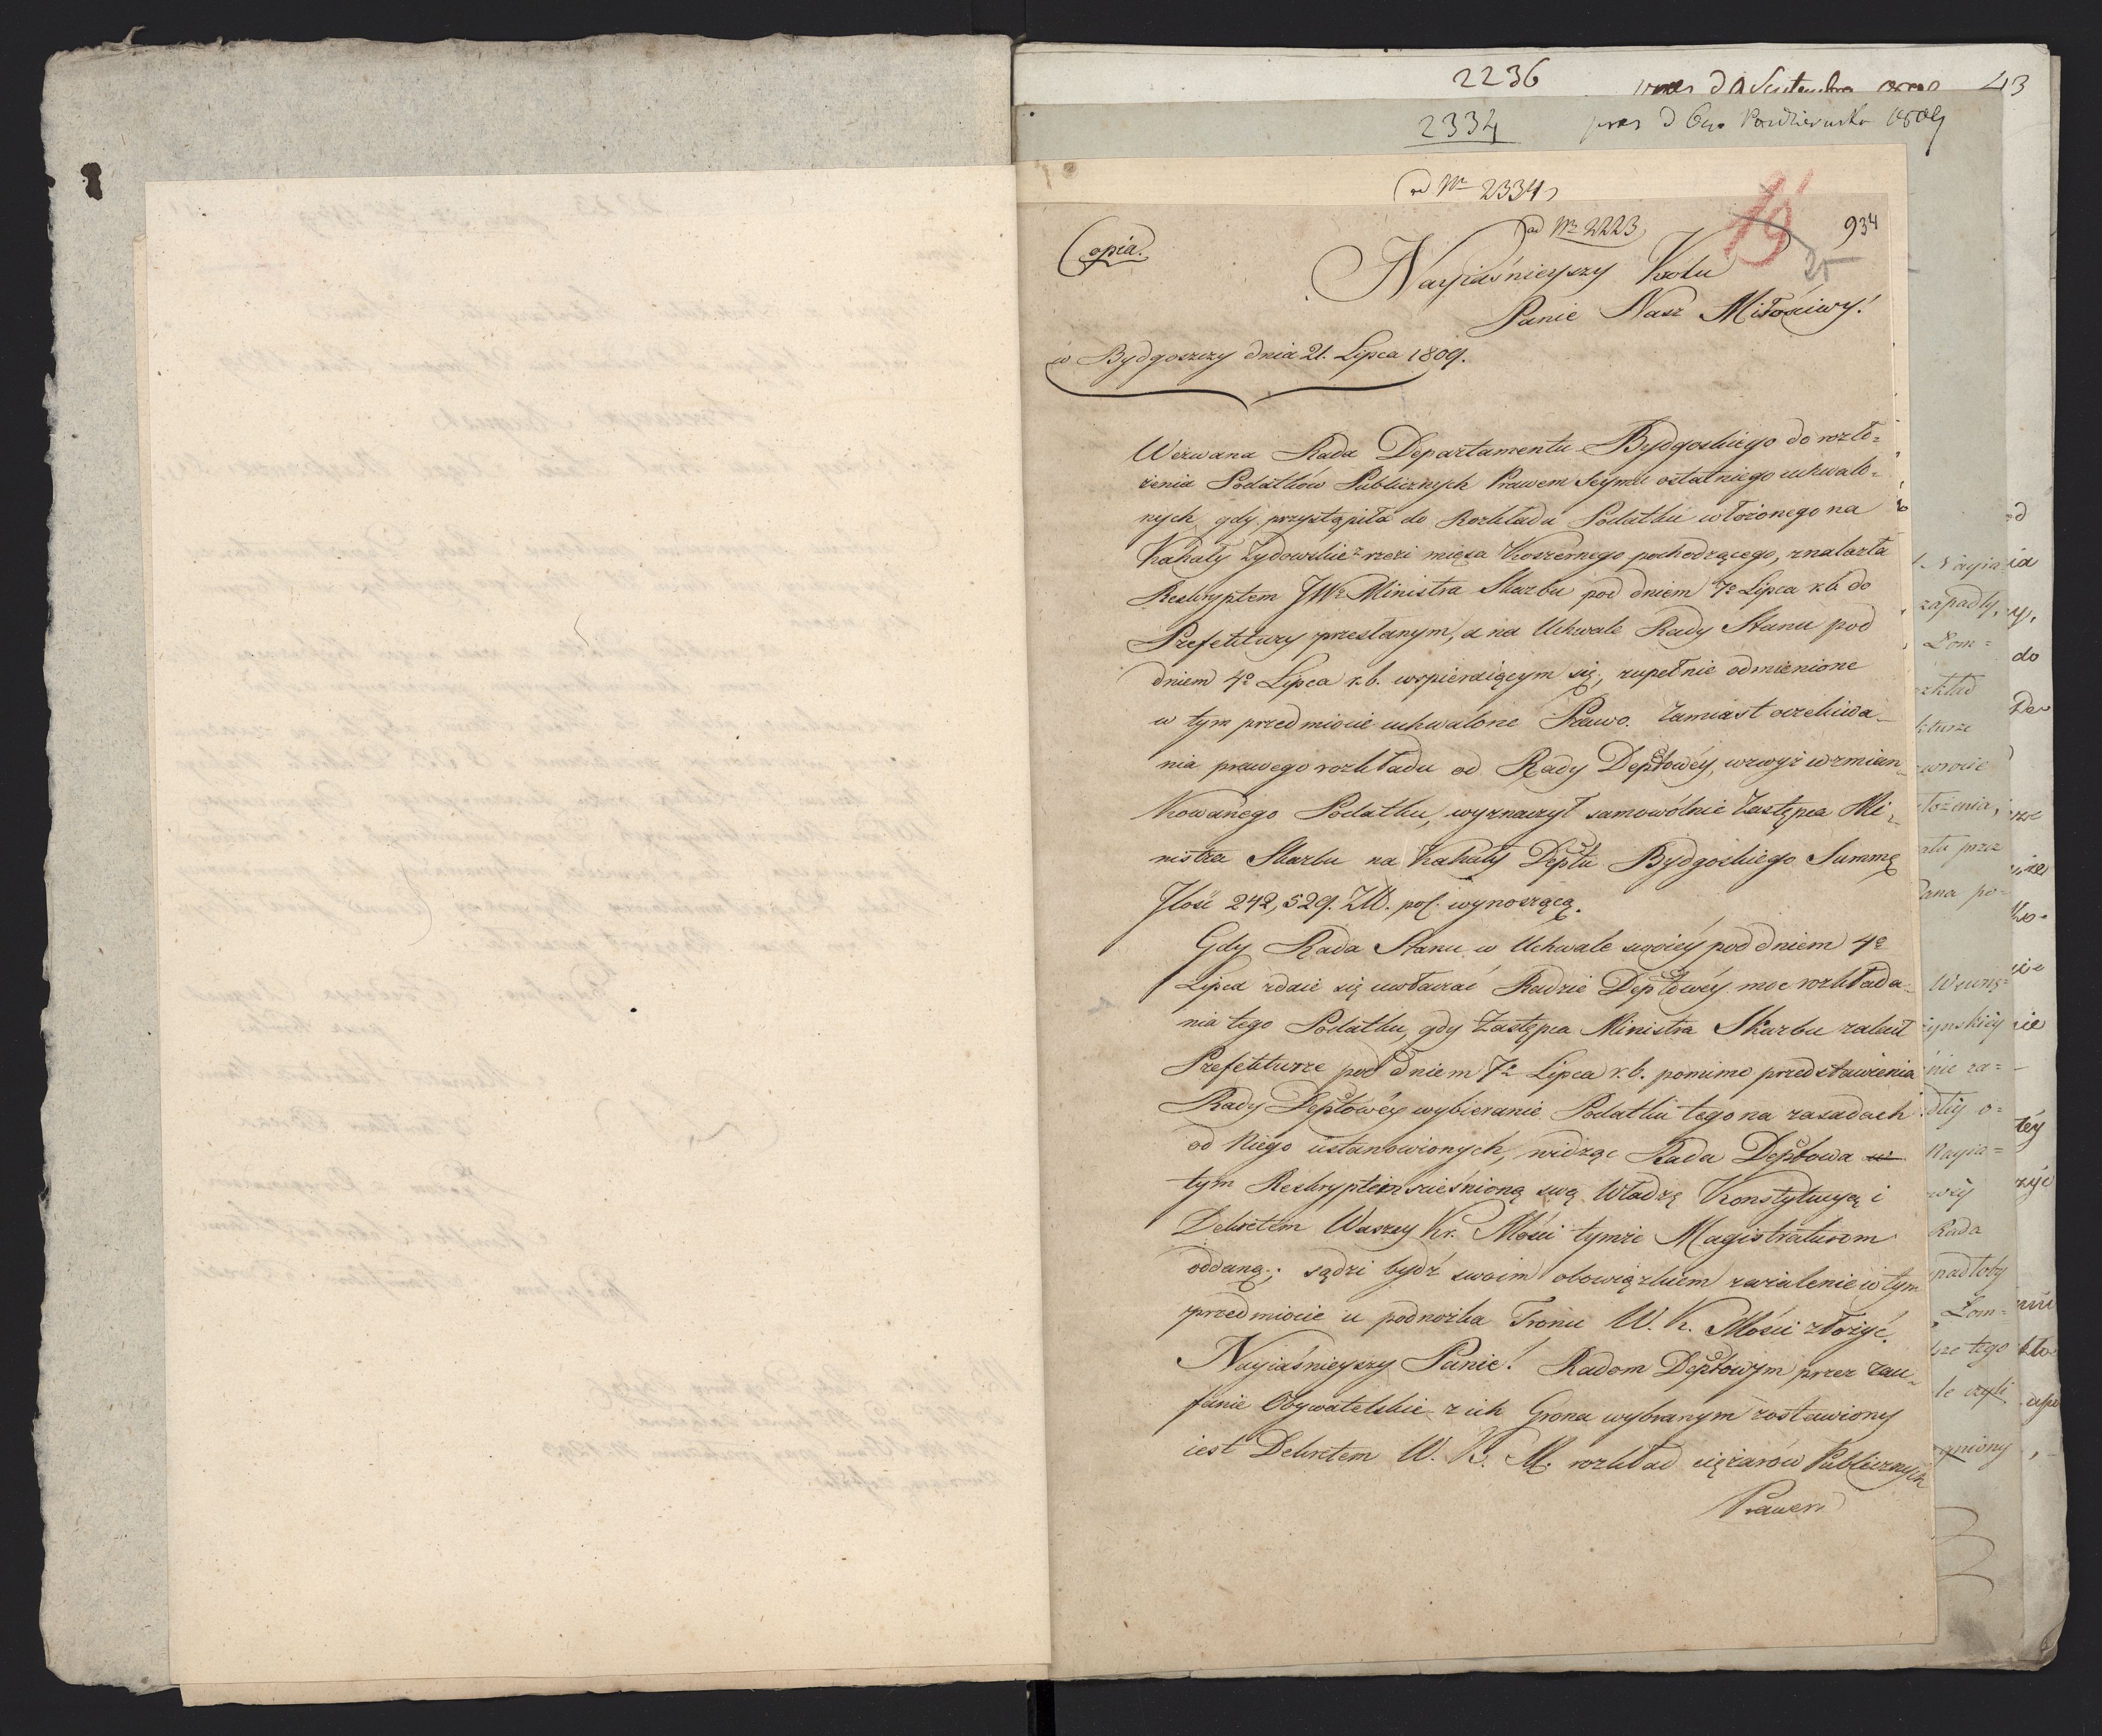 2236
43
2334
pras d 6go Pazdziernika 1809
ad Nro 2334
ad Nro 2223
934
Copia.
Nayiaśnieyszy Królu
Panie Nasz Miłościwy!
w Bydgoszczy dnia 21. Lipca 1809.
Wezwana Rada Departamentu Bydgoskiego do rozło=
żenia Podatków Publicznych Prawem Seymu ostatniego uchwalo=
nych, gdy przystąpiła do Rozkładu Podatku włożonego na
Kahały Żydowskie z rzezi mięsa Koszernego pochodzącego, znalazła
Reskryptem JWo Ministra Skarbu pod dniem 7o Lipca r.b. do
Prefektury przesłanym, a na Uchwale Rady Stanu pod
dniem 4o Lipca r.b. wspieraiącym się, zupełnie odmienione
w tym przedmiocie uchwalone Prawo. Zamiast oczekiwa=
nia prawego rozkładu od Rady Deptowéy, wzwyż wzmian=
kowanego Podatku, wyznaczył samowólnie Zastępca Mi=
nistra Skarbu na Kahały Deptu Bydgoskiego Summę
Jlość 242,529. Zł. pol. wynoszącą.
Gdy Rada Stanu w Uchwale swoiéy pod dniem 4o
Lipca zdaie się uwłaczać Radzie Deptowéy moc rozkłada=
nia tego Podatku, gdy Zastępca Ministra Skarbu zalecił
Prefekturze pod dniem 7o Lipca r.b. pomimo przedstawienia
Rady Deptowéy wybieranie Podatku tego na zasadach
od Niego ustanowionych, widząc Rada Deptowa w
tym Reskryptem ścieśnioną swą Władzę Konstytucyą i
Dekretem Waszey Kr. Mości tymże Magistraturom
oddaną; sądzi bydź swoim obowiązkiem zażalenie w tym
przedmiocie u podnożka Tronu W. K. Mości złożyć.
Nayiaśnieyszy Panie! Radom Deptowym przez zau=
fanie Obywatelskie z ich Grona wybranym zostawiony
iest Dekretem W. K. M. rozkład ciężarów Publicznych
Prawem